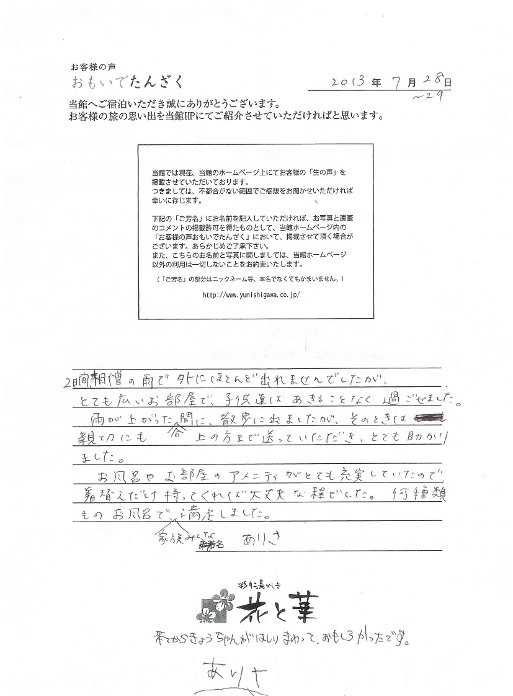 お客様の声
おもいでたんざく
2013年 7月 28日
~29
当館へご宿泊いただき誠にありがとうございます。
お客様の旅の思い出を当館HPにてご紹介させていただければと思います。
当館では現在、当館のホームページ上にてお客様の「生の声」を
掲載させていただいております。
つきましては、不都合がない範囲でご感想をお聞かせいただければ
幸いに存じます。
下記の「ご芳名」にお名前を記入していただければ、お写真と直筆
のコメントの掲載許可を得たものとして、当館ホームページ内の
「お客様の声おもいでたんざく」において、掲載させて頂く場合が
ございます。あらかじめご了承下さい。
また、こちらのお名前と写真に関しましては、当館ホームページ
以外の利用は一切しないことをお約束いたします。
（「ご芳名」の部分はニックネーム等、本名でなくてもかまいません。）
http://www.yunishigawa.co.jp/
2日間相憎の雨で外にほとんど出れませんでしたが、
とても広いお部屋で、子供達はあきることなく過ごせました。
雨が上がった間に、散歩に出ましたが、そのときは
親切にも 上の方まで送っていただき、とても助かり
ました。
お風呂やお部屋のアメニティがとても充実していたので
着替えだけ持ってくれば大丈夫な程でした。何種類
ものお風呂で、満足しました。
家族みんな
ありさ
彩り湯かしき
花と華
きょうちゃんがはしりまわって、おもしろかったです。
ありさ